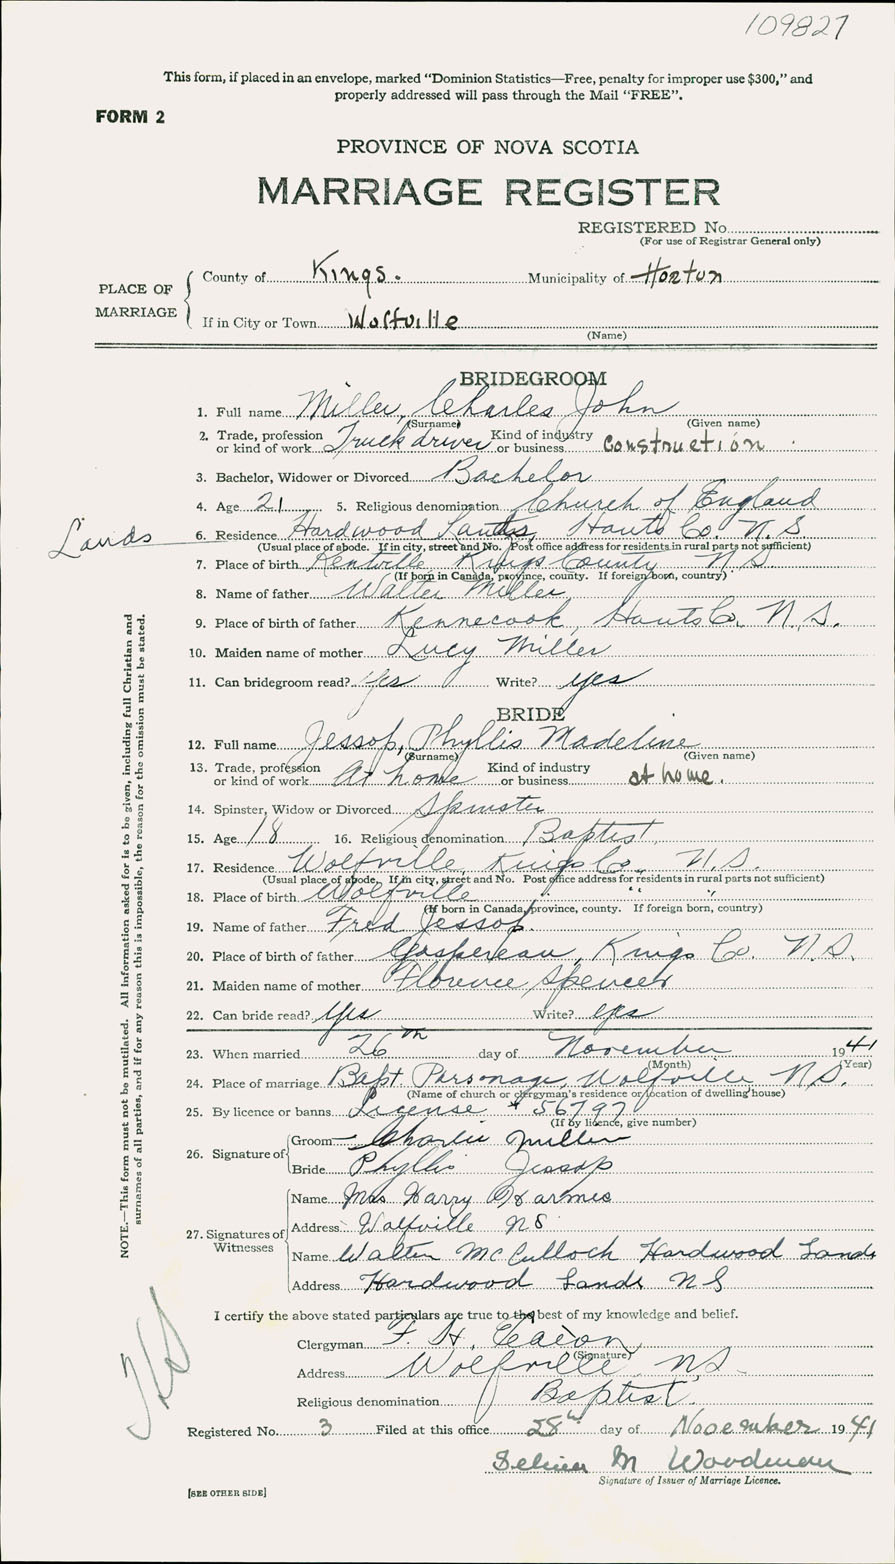 109827
This form, if placed in an envelope, marked "Dominion Statistics—Free, penalty for improper use $300," and
properly addressed will pass through the Mail "FREE".
FORM 2
PROVINCE OF NOVA SCOTIA
MARRIAGE REGISTER
REGISTERED No.
(For use of Registrar General only)
PLACE OF MARRIAGE
County of Kings. Municipality of Horton
If in City or Town Wolfville
(Name)
BRIDEGROOM
1. Full name Miller, Charles John
(Surname) (Given name)
2. Trade, profession or kind of work Truck driver Kind of industry or business construction
3. Bachelor, Widower or Divorced Bachelor
4. Age 21 5. Religious denomination Church of England
Lands
6. Residence Hardwood Lands, Hants Co. N.S
(Usual place of abode. If in city, street and No. Post office address for residents in rural parts not sufficient)
7. Place of birth Kentville Kings County N.S.
(If born in Canada, province, county. If foreign born, country)
8. Name of father Walter Miller
9. Place of birth of father Kennecook, Hants Co. N.S.
10. Maiden name of mother Lucy Miller
11. Can bridegroom read? Yes Write? yes
BRIDE
12. Full name Jessop, Phyllis Madeline
(Surname) (Given name)
13. Trade, profession or kind of work At home Kind of industry or business at home.
14. Spinster, Widow or Divorced Spinster
15. Age 18 16. Religious denomination Baptist
17. Residence Wolfville, Kings Co., N.S.
(Usual place of abode. If in city, street and No. Post office address for residents in rural parts not sufficient)
18. Place of birth Wolfville " "
(If born in Canada, province, county. If foreign born, country)
19. Name of father Fred Jessop.
20. Place of birth of father Gaspereau, Kings Co. N.S.
21. Maiden name of mother Florence Spencer
22. Can bride read? Yes Write? yes
23. When married 26th day of November 1941
(Month) (Year)
24. Place of marriage Bapt. Parsonage, Wolfville N.S.
(Name of church or clergyman's residence or location of dwelling house)
25. By licence or banns License # 56797
(If by licence, give number)
26. Signature of
Groom Charlie Miller
Bride Phyllis Jessop
27. Signatures of Witnesses
Name Mrs Harry
Address Wolfville NS
Name Walter McCulloch Hardwood Lands
Address Hardwood Lands NS
I certify the above stated particulars are true to the best of my knowledge and belief.
Clergyman F. H. Eaton
(Signature)
Address Wolfville N.S.
Religious denomination Baptist.
Registered No. 3 Filed at this office 28th day of November 1941
M Woodman
Signature of Issuer of Marriage Licence.
[SEE OTHER SIDE]
NOTE.—This form must not be mutilated. All information asked for is to be given, including full Christian and
surnames of all parties, and if for any reason this is impossible, the reason for the omission must be stated.